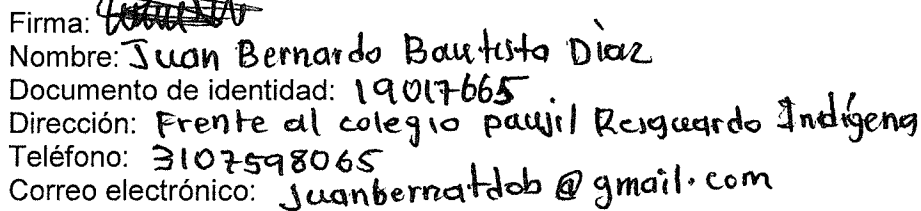 Firma:
Nombre: Juan Bernardo Bautista Diaz
Documento de identidad: 19017665
Dirección: Frente al colegio paujil Resguardo Indígena
Teléfono: 3107598065
Correo electrónico: juanbernatdob@gmail.com